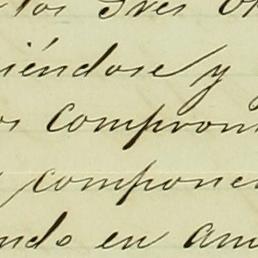 los Sres
iéndose y
os comprom
componen
ando en am